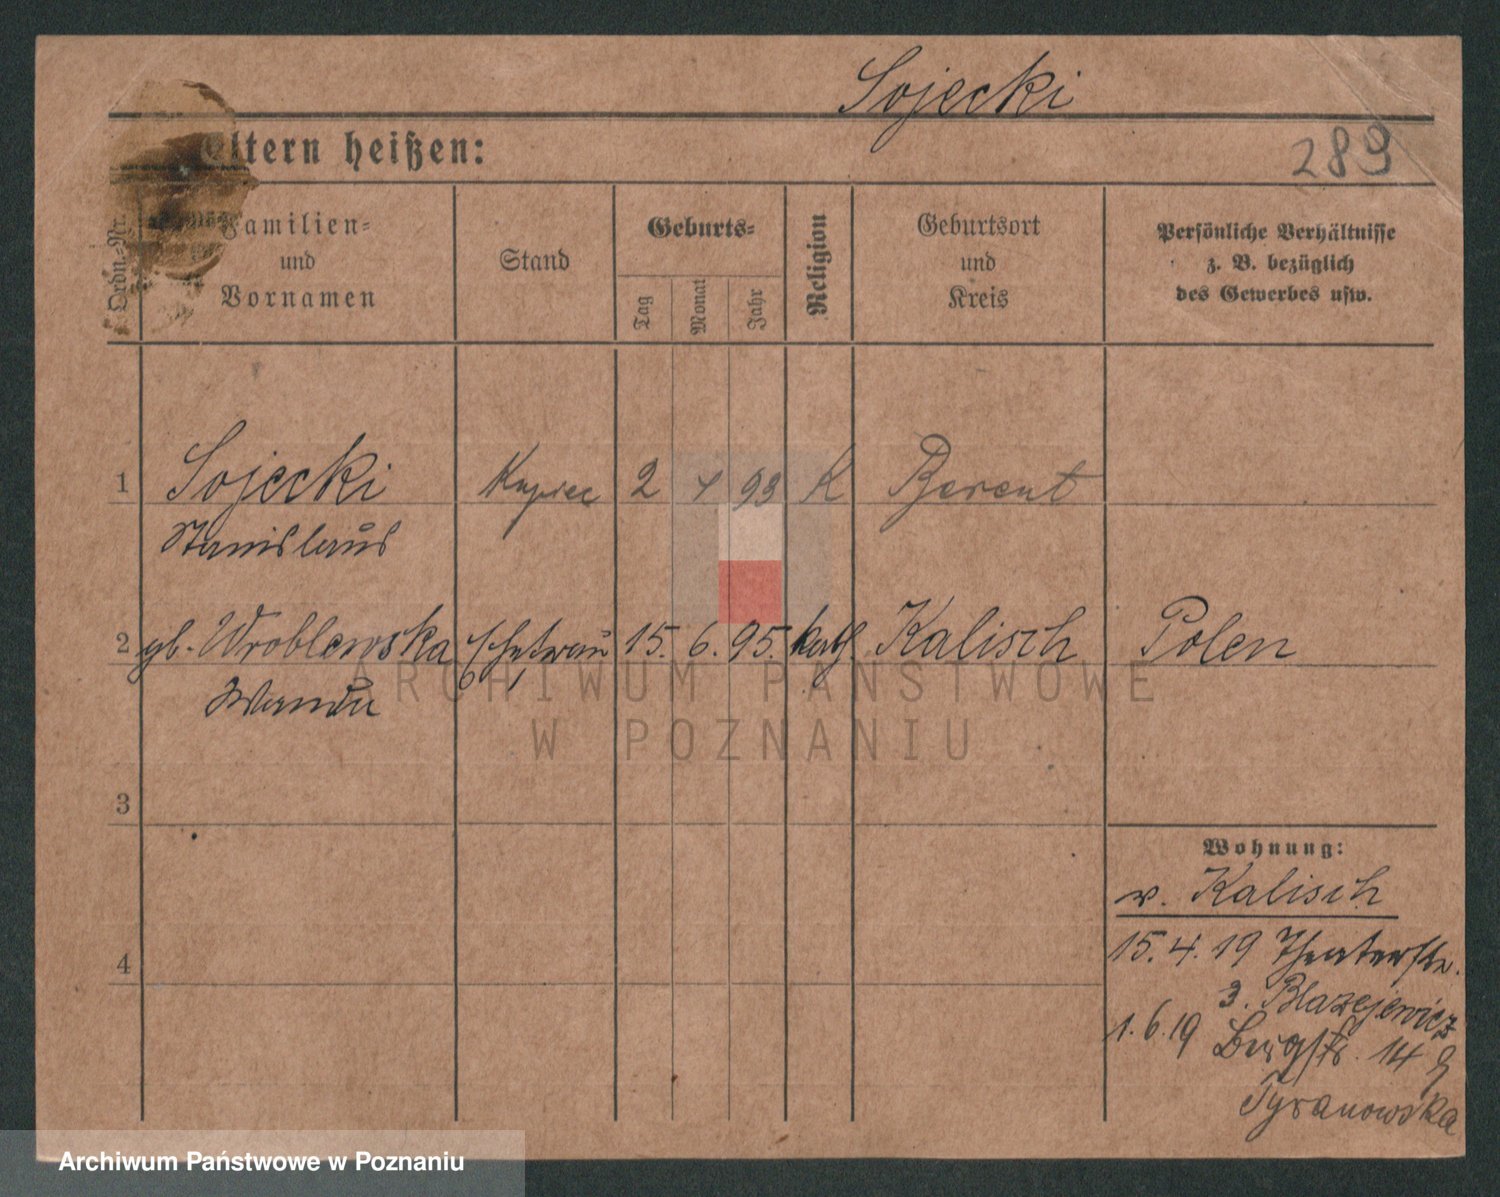 Sojecki
Eltern heißen:
289
Ordn.-Nr.
Familien-
und
Vornamen
Stand
Geburts-
Tag
Monat
Jahr
Religion
Geburtsort
und
Kreis
Persönliche Verhältnisse
z. B. bezüglich
des Gewerbes usw.
1 Sojecki Kupiec 2 4 93 K Berent
Stanislaus
2 gb. Wroblewska Ehefrau 15. 6. 95. kath. Kalisch Polen
Wanda
ARCHIWUM PAŃSTWOWE
W POZNANIU
3
Wohnung:
v. Kalisch
4
15. 4. 19 Theaterstr.
3. Blazejewicz
1. 6. 19 Bergstr. 14
Tyranowska
Archiwum Państwowe w Poznaniu